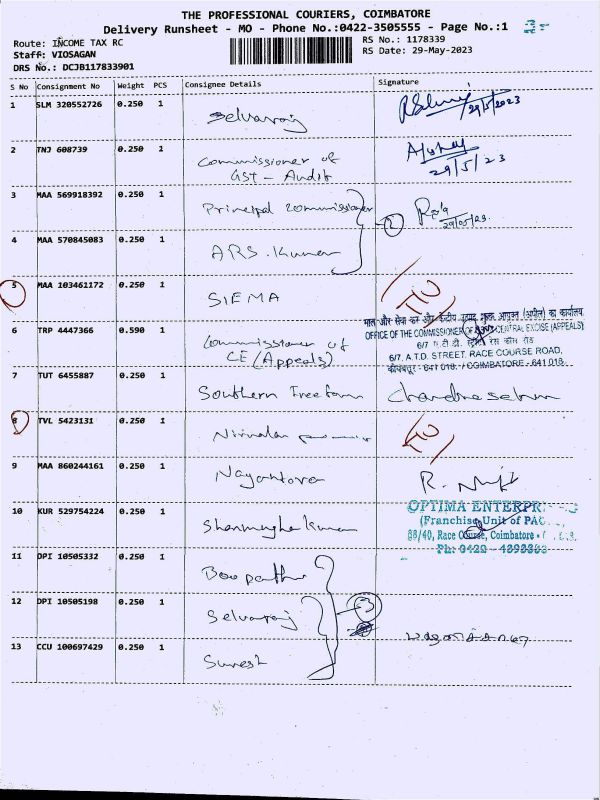 THE PROFESSIONAL COURIERS, COIMBATORE
Delivery Runsheet - MO - Phone No.:0422-3505555 - Page No.:1
Route: INCOME TAX RC
RS No.: 1178339
Staff: VIOSAGAN
RS Date: 29-May-2023
DRS No.: DCJB117833901
S No Consignment No Weight PCS Consignee Details Signature
1 SLM 320552726 0.250 1 Selvaraj 29/5/2023
2 TNJ 608739 0.250 1 Commissioner of
GST - Audit
29/5/23
3 MAA 569918392 0.250 1 Principal Commissioner
2 29/05/23
4 MAA 570845083 0.250 1 ARS. Kumar
5 MAA 103461172 0.250 1 SIEMA
6 TRP 4447366 0.590 1 Commissioner of
CE (Appeals)
OFFICE OF THE COMMISSIONER OF CENTRAL EXCISE (APPEALS)
6/7 ए.टी.डी. स्ट्रीट रेस कोर्स रोड
6/7, A.T.D. STREET, RACE COURSE ROAD,
कोयम्बतूर - 641 018. / COIMBATORE - 641 018.
7 TUT 6455887 0.250 1 Southern Treeforn Chandrasekar
8 TVL 5423131 0.250 1 Nirmalan
9 MAA 860244161 0.250 1 Nayantara R.
10 KUR 529754224 0.250 1 Shanmugha Kumar
OPTIMA ENTERPR
(Franchise Unit of PAC
88/40, Race Course, Coimbatore
11 DPI 10505332 0.250 1 Boopathi
12 DPI 10505198 0.250 1 Selvaraj 3
13 CCU 100697429 0.250 1 Suresh